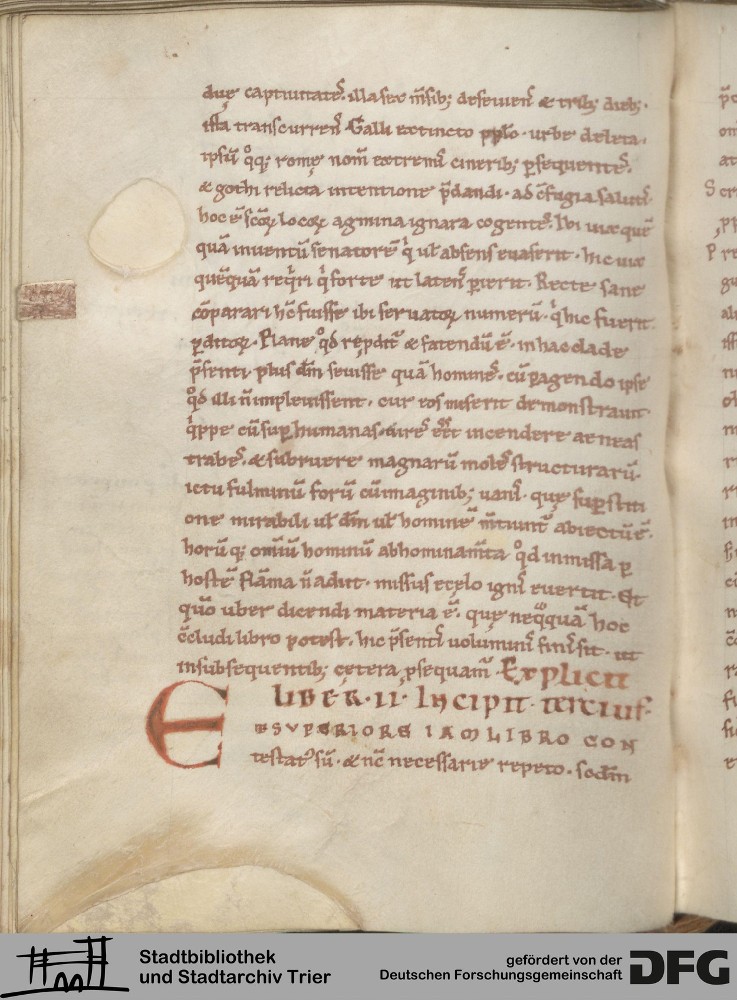 duę captiuitatē̛. illa sex m̄sib; deseuien̄ & trib; dieb;.
ista transcurren̄. Galli extincto pp̄lo. urbe deleta.
ipsū qͦq; romę nom̄ extremis̄ cinerib; p̱sequentes̄.
& gothi relicta intentione p̄dandi. ad c̄fugia salutis̄.
hoc ē scōꝝ locoꝝ agmina ignara cogentes̄. Ibi uix quē
quā inuentū senatorē qͥ ul̄ absens euaserit. hic uix
quēquā req̄ri qͥ forte ut laten̄ p̱ierit. Recte sane
cōparari hc̄ fuisse ibi seruatoꝝ numerū. qͥ hic fuerit
p̱ditoꝝ. Plane qͦd rep̱dit̄ & fatendū ē. in hac clade
p̄senti plus dm̄ seuisse quā homines̄. cū p̱agendo ipse
qͦd illi n̄ impleuissent. cur eos miserit demonstrauit
qͥppe cū sup̱ humanas uires̄ eēt incendere aeneas
trabes̄. & subruere magnarū moles̄ structurarū.
ictu fulminū forū cū imaginib; uanis̄. quę sup̱stiti
one mirabili ul̄ dm̄ ul̄ hominē m̄tiunt̄ abiectū ē.
horū q; om̄iū hominū abhominam̄ta qͦd inmissa p̱
hostē flāma n̄ adiit. missus e cęlo ignis̄ euertit. Et
quō uber dicendi materia ē. quę neqͣquā hoc
c̄cludi libro potest. hic p̄sentis̄ uoluminis̄ finis̄ sit. ut
insubsequentib; cętera p̱sequam̄. Explicit
liber. ii. Incipit tercius.
E TSVPERIORE IAM LIBRO CON
testat᷒ sū. & nc̄ necessarie repeto. scdm̄
Stadtbibliothek
und Stadtarchiv Trier
gefördert von der
Deutschen Forschungsgemeinschaft
DFG